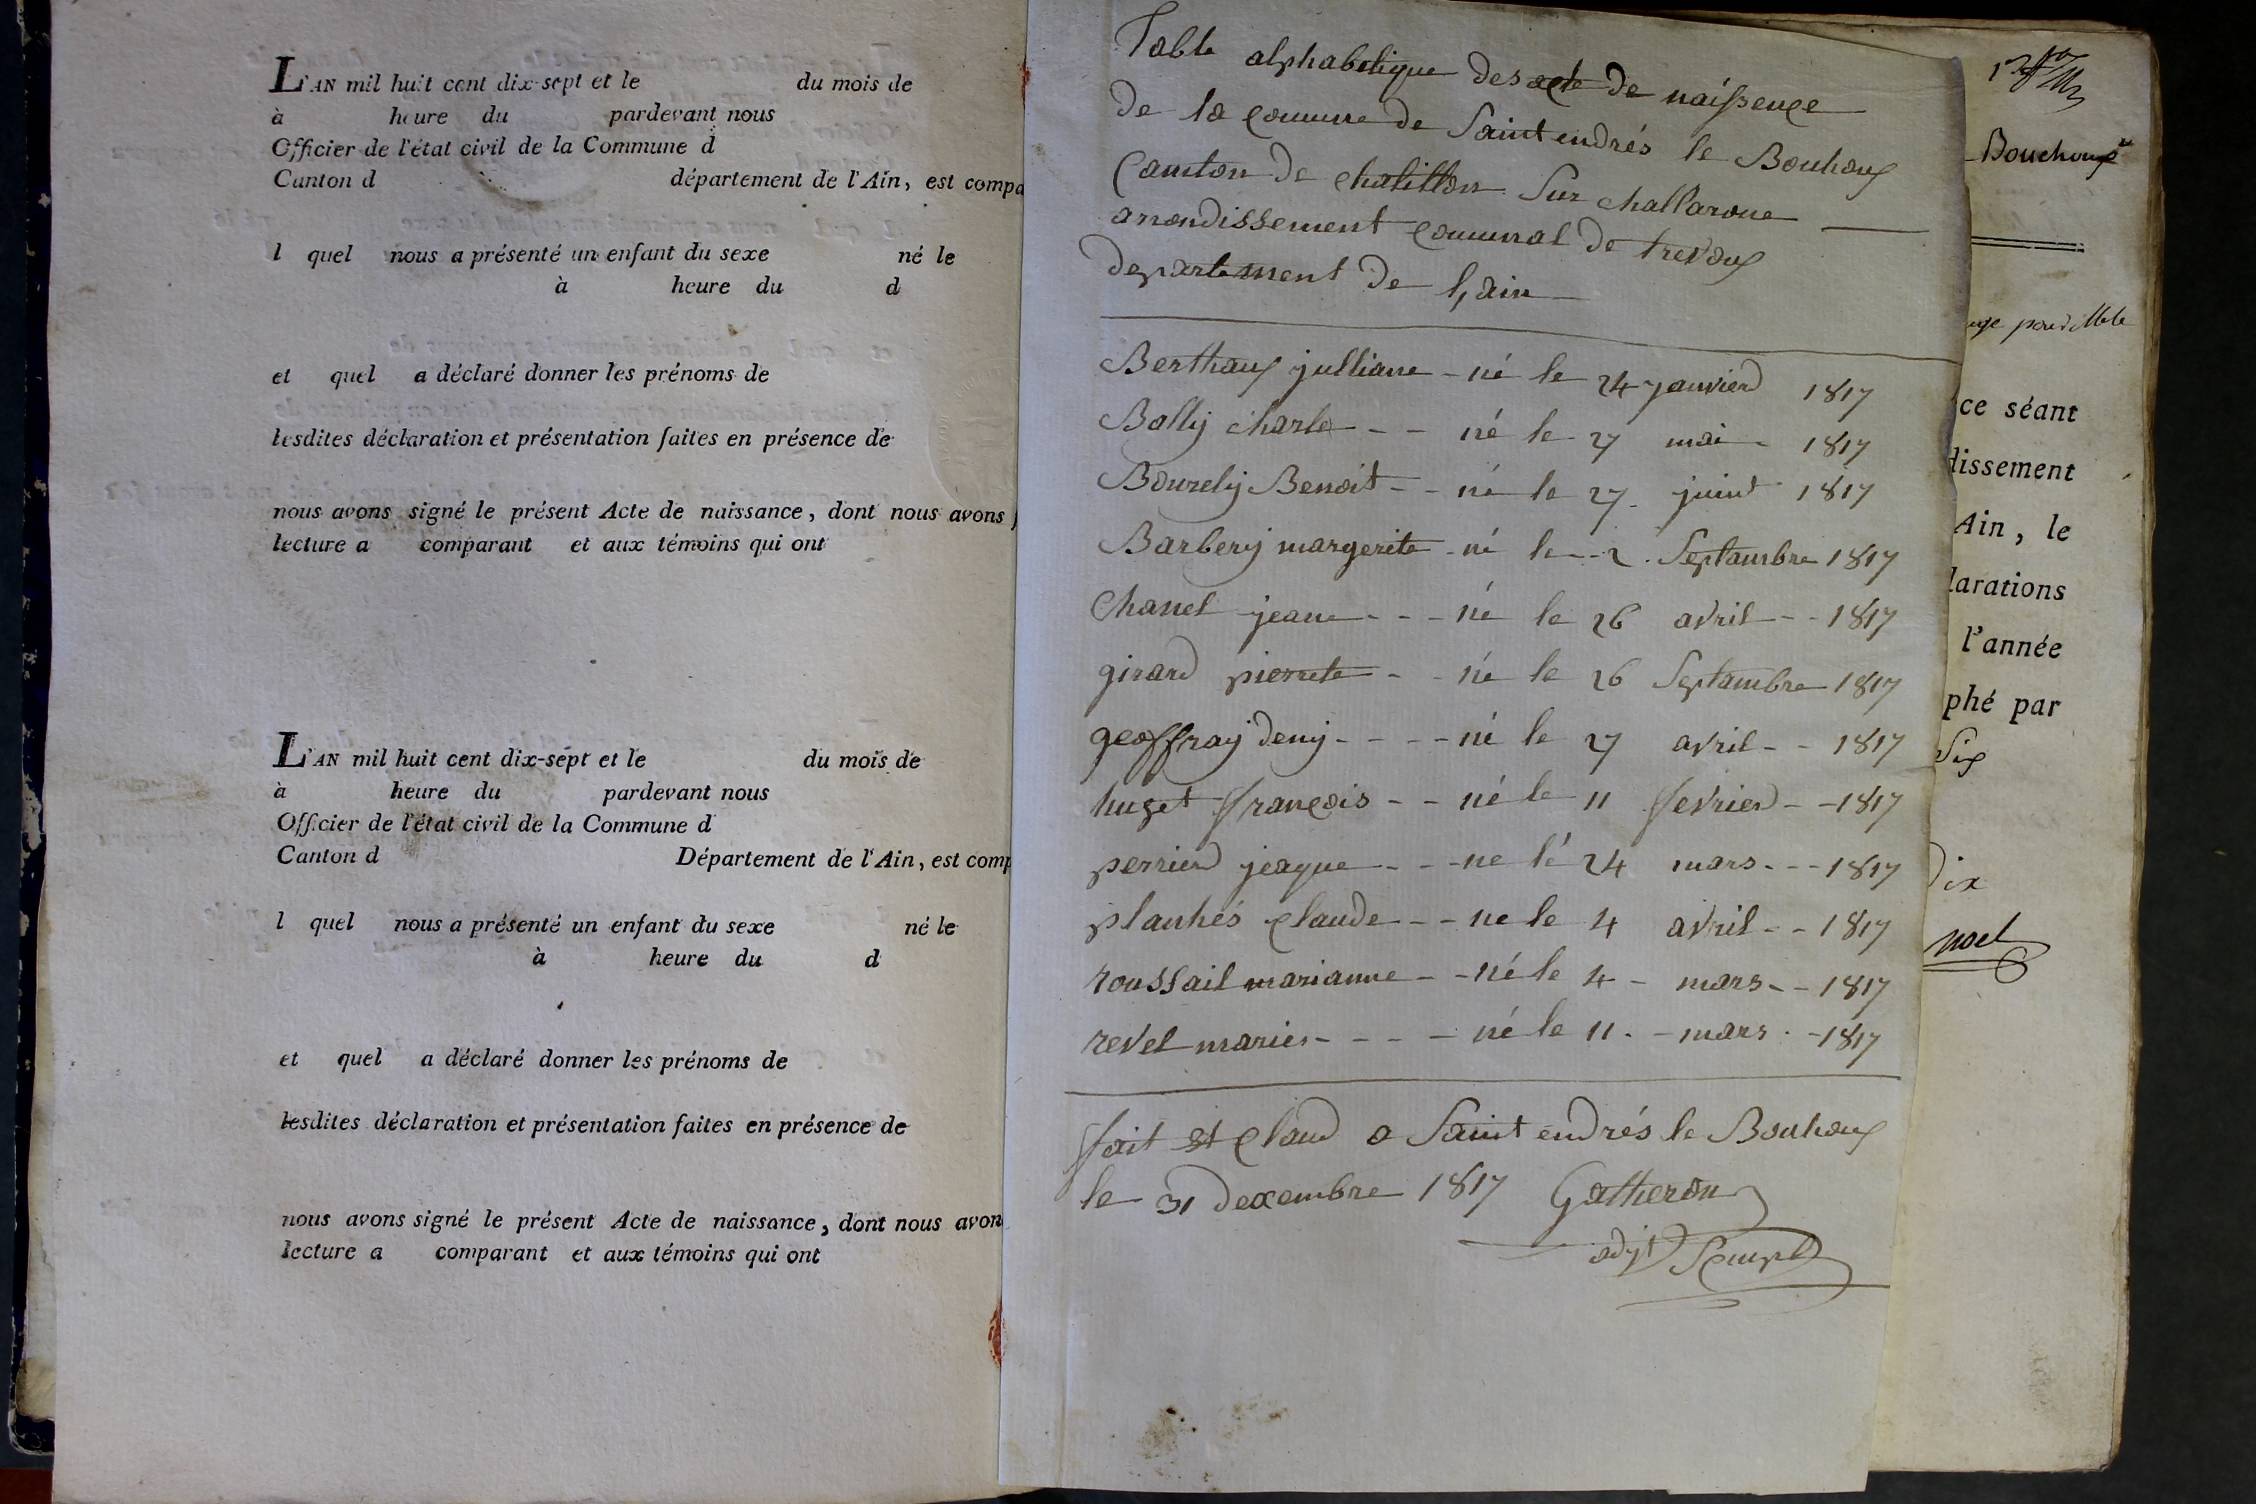 L'AN mil huit cent dix-sept et le du mois de
à heure du pardevant nous
Officier de l'état civil de la Commune d
Canton d département de l'Ain, est compa
l quel nous a présenté un enfant du sexe né le
à heure du d
et quel a déclaré donner les prénoms de
lesdites déclaration et présentation faites en présence de
nous avons signé le présent Acte de naissance, dont nous avons
lecture a comparant et aux témoins qui ont
L'AN mil huit cent dix-sept et le du mois de
à heure du pardevant nous
Officier de l'état civil de la Commune d
Canton d Département de l'Ain, est comp
l quel nous a présenté un enfant du sexe né le
à heure du d
et quel a déclaré donner les prénoms de
lesdites déclaration et présentation faites en présence de
nous avons signé le présent Acte de naissance, dont nous avon
lecture a comparant et aux témoins qui ont
Table alphabetique des acte de naissence
de la commune de Saint endrés le Bouhoux
Canton de chatillon sur challarone
arrondissement communal de trevoux
departement de l,ain
Berthaux julliane - né le 24 janvier 1817
Bally charle - - né le 27 mai - 1817
Bourely Benoit - - né le 27 - juint 1817
Barbery margerite - né le - - 2 . Septambre 1817
Chanel jeane - - - né le 26 avril - - 1817
girard pierrete - - né le 26 Septambre 1817
geoffray deny - - - - né le 27 avril - - 1817
huget françois - - né le 11 fevrier - - 1817
perrier jeaque - - - ne lé 24 mars - - - 1817
planhés claude - - ne le 4 avril - - 1817
roussail marianne - - né le 4 - mars - - 1817
revel marie - - - - né le 11 . - mars . - 1817
fait et claud a Saint endrés le Bouhoux
le 31 dexembre 1817 Gatheron
adjt
Bouchoux
ce séant
dissement
Ain, le
larations
l'année
phé par
Six
Dix
noel